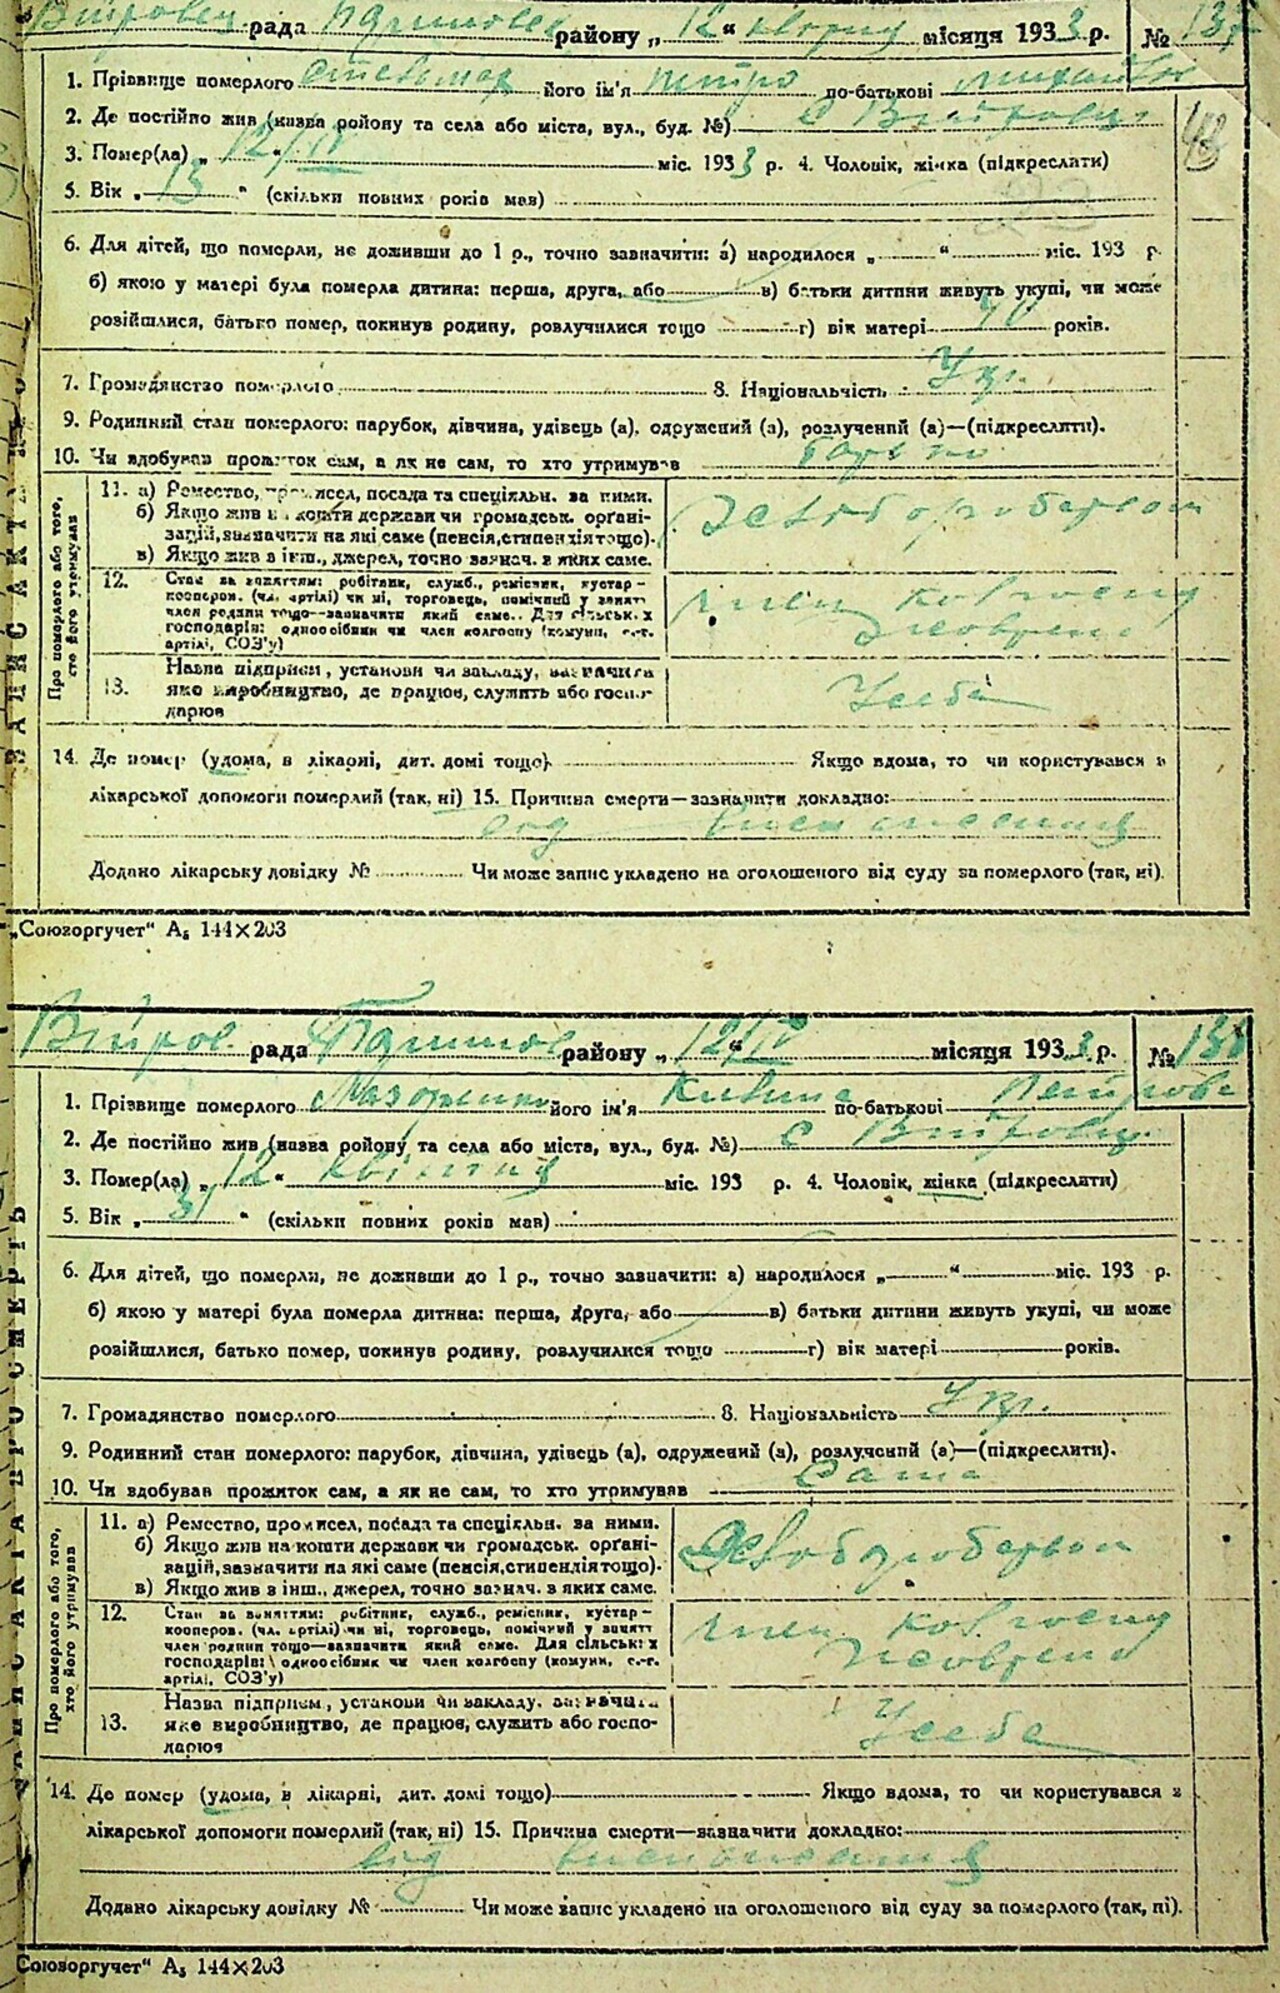 рада району „ 12 “ місяця 1933 р. №
1. Прізвище померлого його ім'я Петро по-батькові
2. Де постійно жив (назва ройону та села або міста, вул., буд. №) с
3. Помер(ла) „ 12/IV “ міс. 1933 р. 4. Чоловік, жінка (підкреслити)
5. Вік „ 13 “ (скільки повних років мав)
6. Для дітей, що померли, не доживши до 1 р., точно зазначити: а) народилося „ “ міс. 193 р.
б) якою у матері була померла дитина: перша, друга, або в) батьки дитини живуть укупі, чи може
розійшлися, батько помер, покинув родину, розлучилися тощо г) вік матері 40 років.
7. Громадянство померлого 8. Національність Укр.
9. Родинний стан померлого: парубок, дівчина, удівець (а), одружений (а), розлучений (а)—(підкреслити).
10. Чи здобував прожиток сам, а як не сам, то хто утримував
Про померлого або того, хто його утримував
11. а) Ремество, промисел, посада та спеціяльн. за ними.
б) Якщо жив на кошти держави чи громадськ. орґані-
зацій, зазначити на які саме (пенсія, стипендія тощо).
в) Якщо жив з інш., джерел, точно зазнач. з яких саме.
12. Стан за заняттям: робітник, служб., ремісник, кустар-
кооперов. (чл. артілі) чи ні, торговець, помічний у занят.
член родини тощо—зазначити який саме. Для сільських
господарів: одноосібник чи член колгоспу (комуни, с.-г.
артілі, СОЗ'у)
член колгоспу
13. Назва підприєм, установи чи закладу, зазначити
яке виробництво, де працює, служить або госпо-
дарює
У себе
14. Де помер (удома, в лікарні, дит. домі тощо) Якщо вдома, то чи користувався з
лікарської допомоги померлий (так, ні) 15. Причина смерти—зазначити докладно:
від виснаження
Додано лікарську довідку № Чи може запис укладено на оголошеного від суду за померлого (так, ні).
„Союзоргучет“ А5 144×203
рада району „ 12/IV “ місяця 1933 р. № 138
1. Прізвище померлого його ім'я по-батькові
2. Де постійно жив (назва ройону та села або міста, вул., буд. №) с
3. Помер(ла) „ 12 “ квітня міс. 193 р. 4. Чоловік, жінка (підкреслити)
5. Вік „ 31 “ (скільки повних років мав)
6. Для дітей, що померли, не доживши до 1 р., точно зазначити: а) народилося „ “ міс. 193 р.
б) якою у матері була померла дитина: перша, друга, або в) батьки дитини живуть укупі, чи може
розійшлися, батько помер, покинув родину, розлучилися тощо г) вік матері років.
7. Громадянство померлого 8. Національність Укр.
9. Родинний стан померлого: парубок, дівчина, удівець (а), одружений (а), розлучений (а)—(підкреслити).
10. Чи здобував прожиток сам, а як не сам, то хто утримував Сама
Про померлого або того, хто його утримував
11. а) Ремество, промисел, посада та спеціяльн. за ними.
б) Якщо жив на кошти держави чи громадськ. орґані-
зацій, зазначити на які саме (пенсія, стипендія тощо).
в) Якщо жив з інш., джерел, точно зазнач. з яких саме.
12. Стан за заняттям: робітник, служб., ремісник, кустар-
кооперов. (чл. артілі) чи ні, торговець, помічний у занятт.
член родини тощо—зазначити який саме. Для сільських
господарів: одноосібник чи член колгоспу (комуни, с.-г.
артілі, СОЗ'у)
член колгоспу
13. Назва підприєм, установи чи закладу, зазначити
яке виробництво, де працює, служить або госпо-
дарює
У себе
14. Де помер (удома, в лікарні, дит. домі тощо) Якщо вдома, то чи користувався з
лікарської допомоги померлий (так, ні) 15. Причина смерти—зазначити докладно:
від виснаження
Додано лікарську довідку № Чи може запис укладено на оголошеного від суду за померлого (так, ні).
Союзоргучет“ А5 144×203